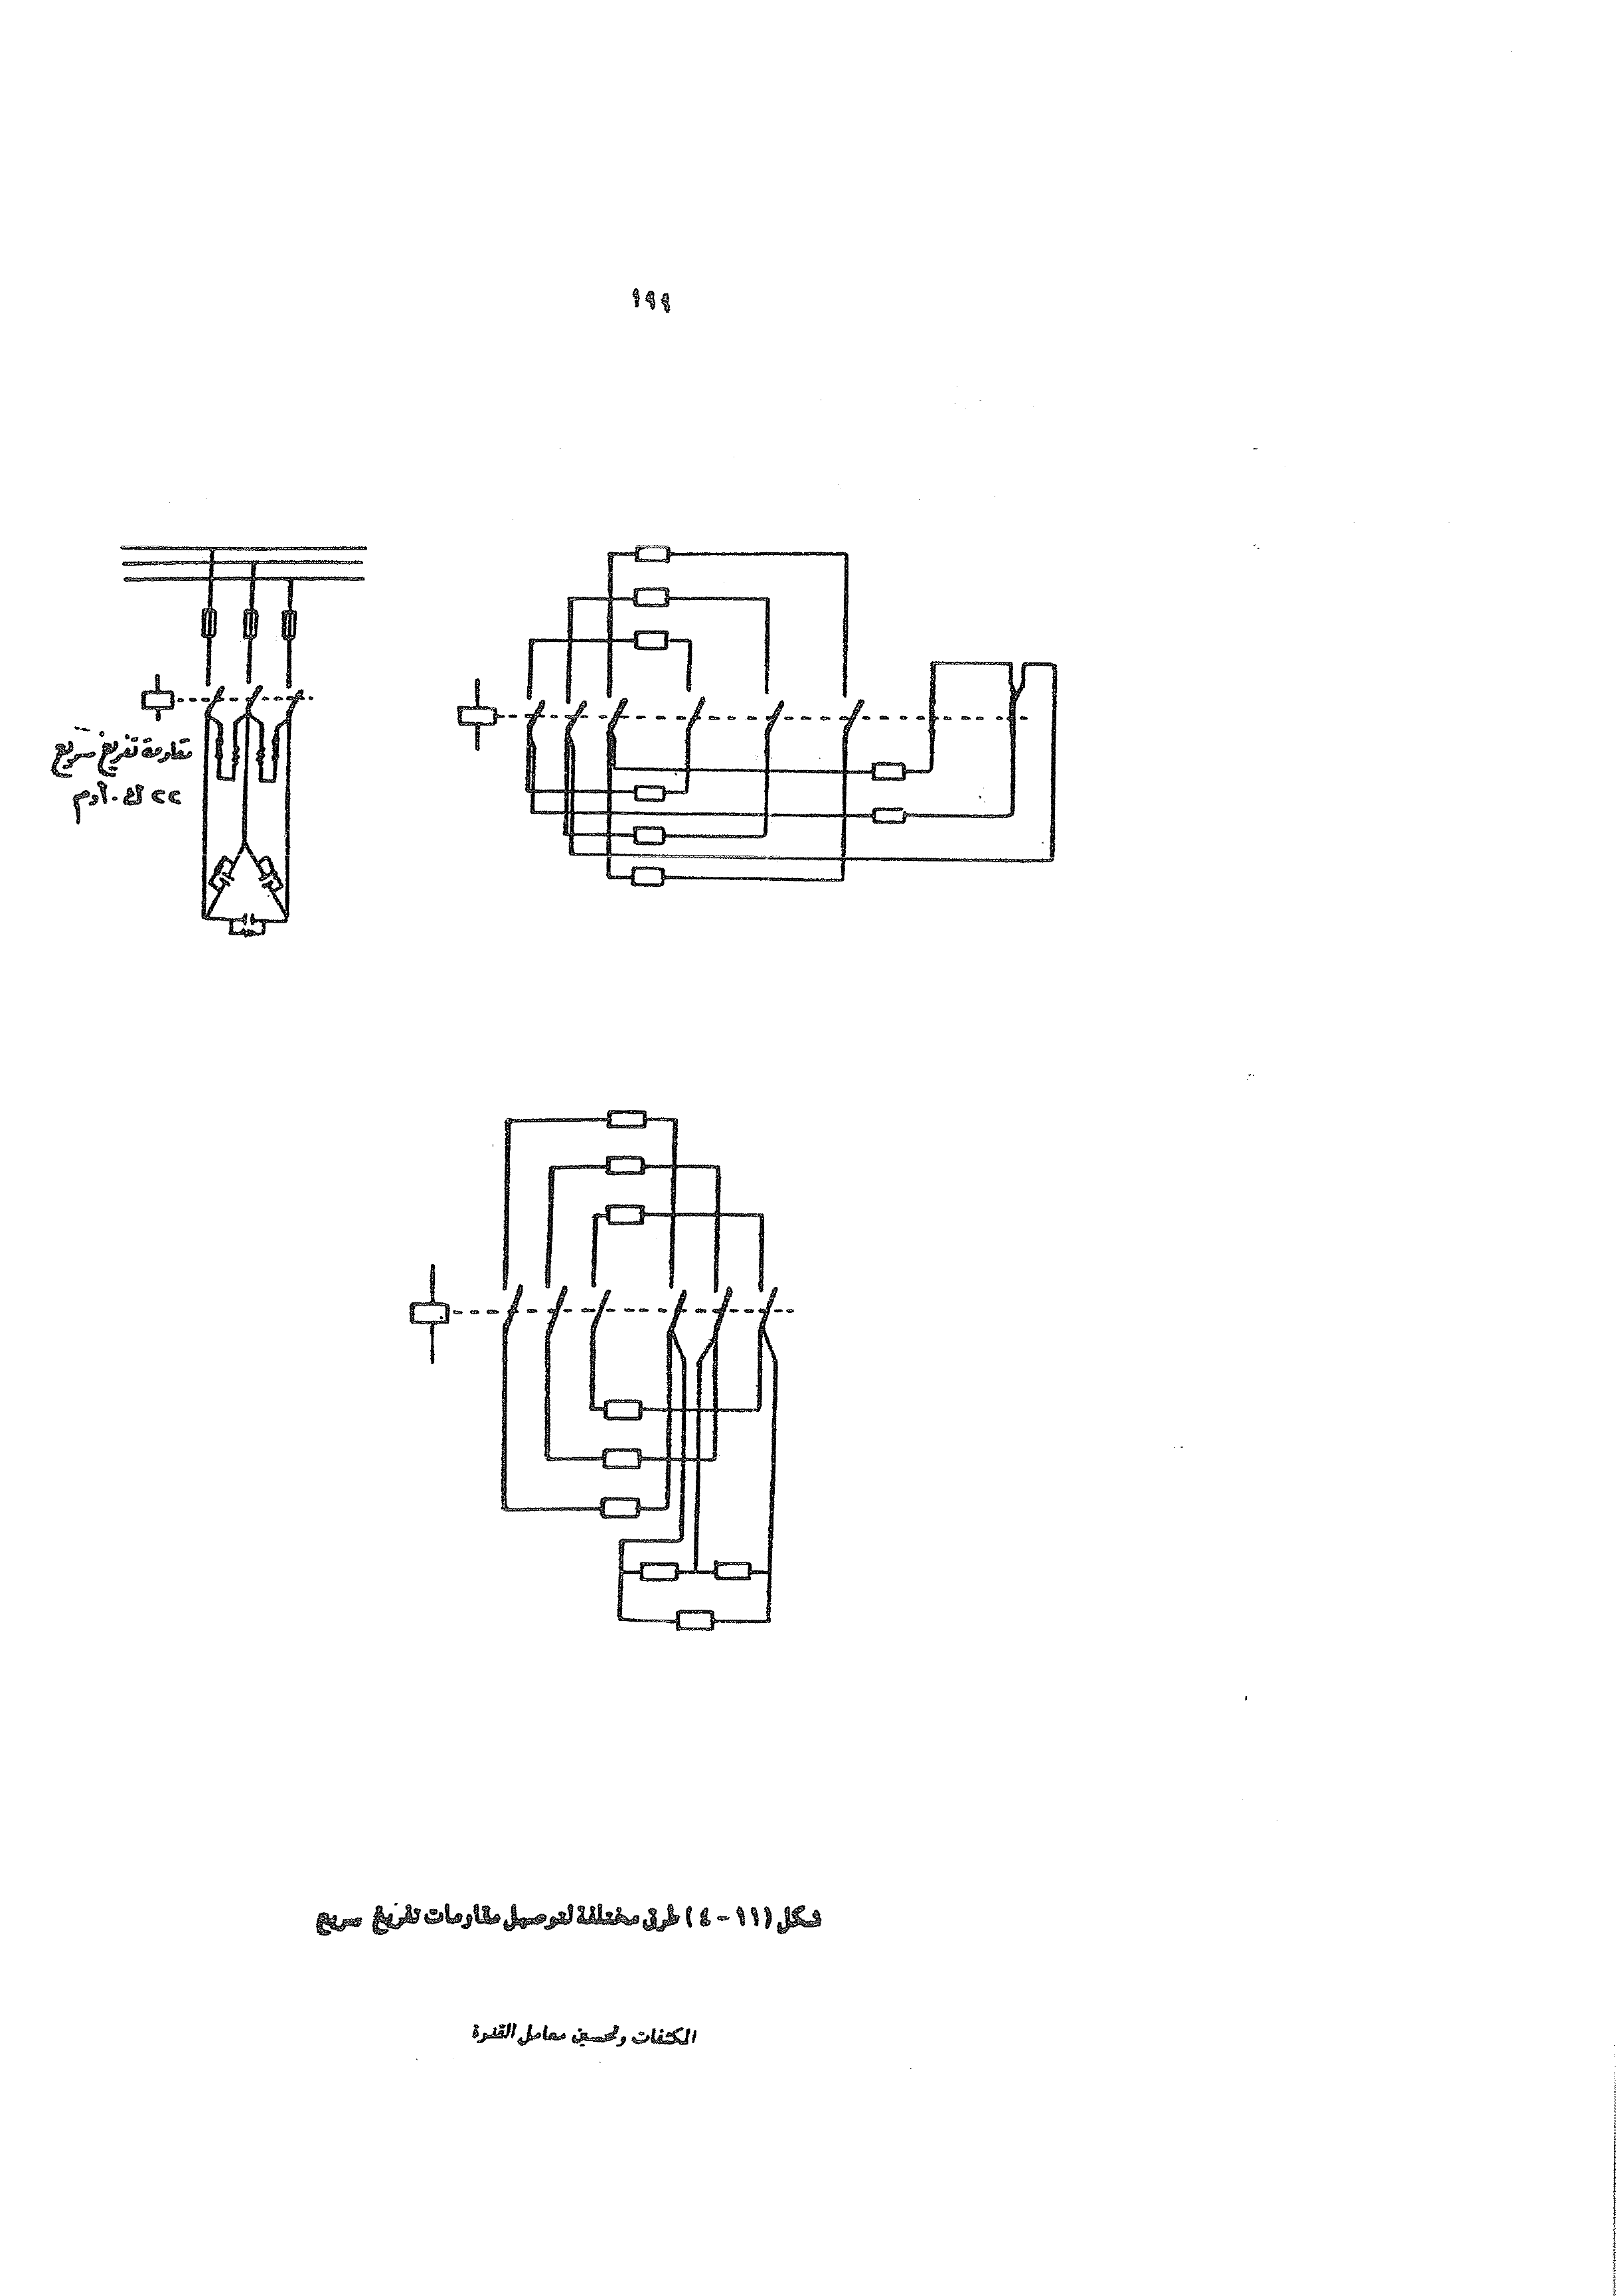 ١٩٩
مقاومة تفريغ سريع
٢٢ ك.أوم
شكل (١١-٤) طرق مختلفة لتوصيل مقاومات تفريغ سريع
الكثفات وتحسين معامل القدرة